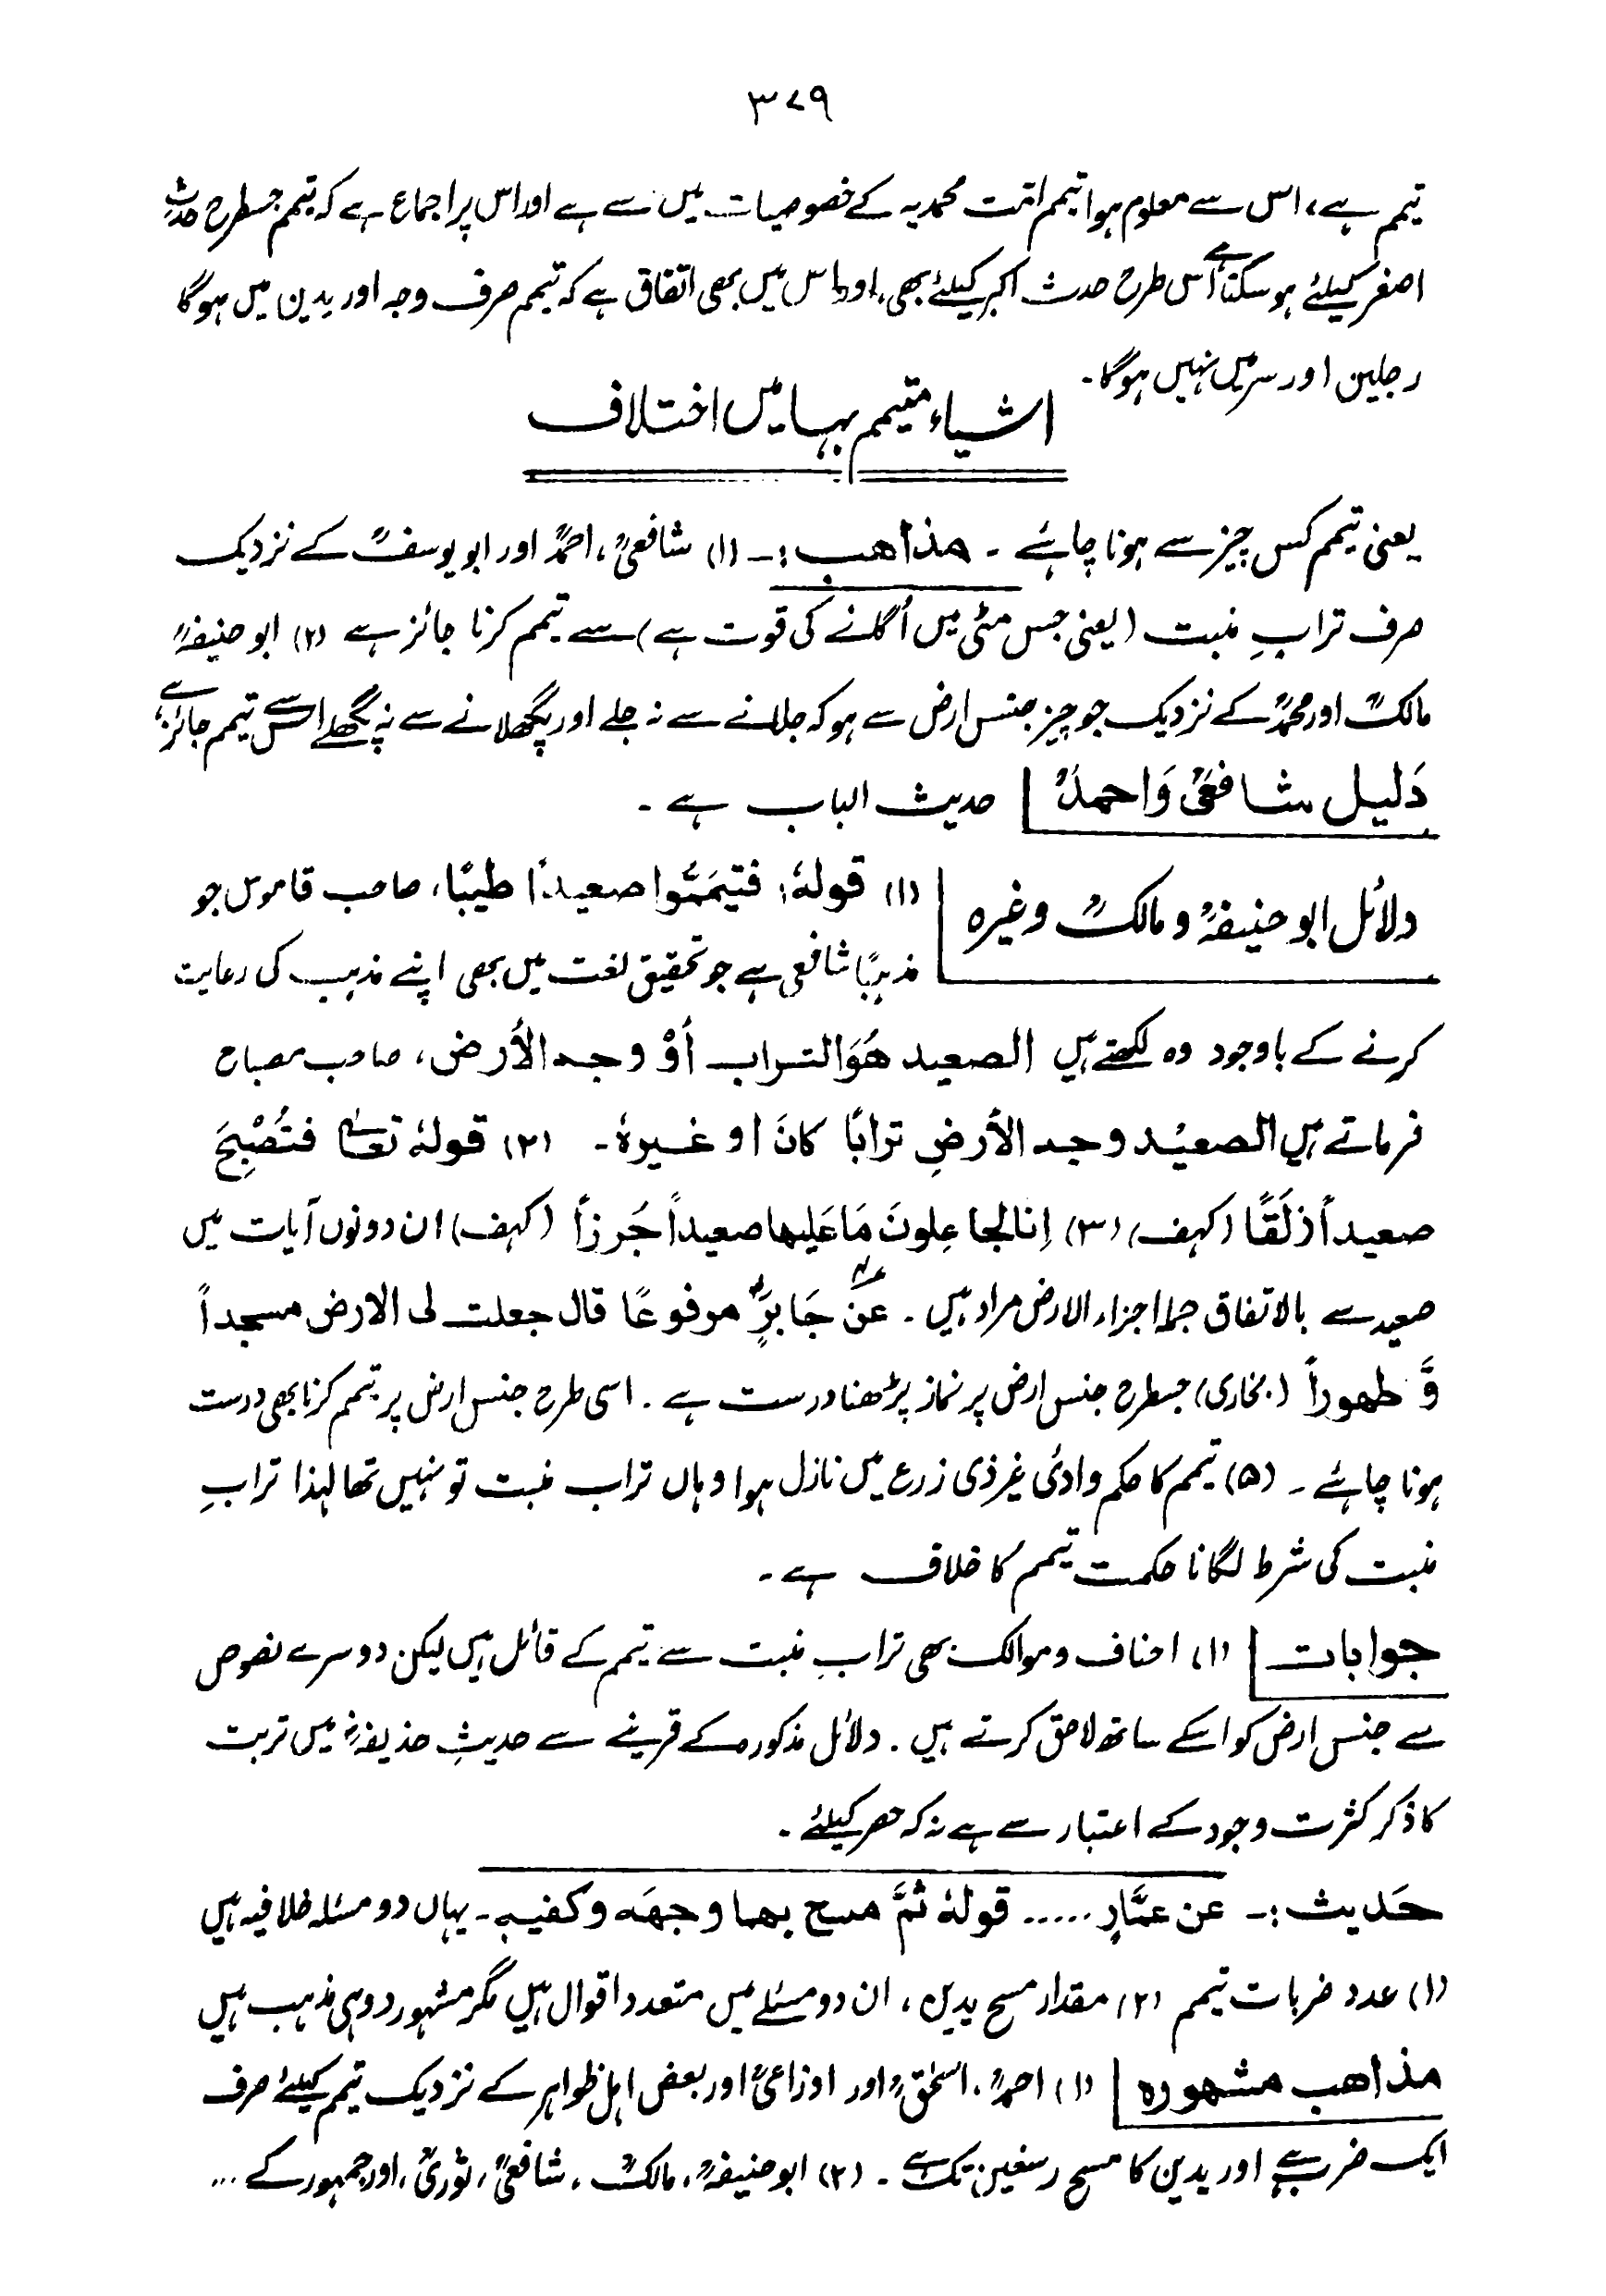 ۳۷۹
تیمم ہے، اس سے معلوم ہوا تیمم امت محمدیہ کے خصوصیات میں سے ہے اور اس پر اجماع ہے کہ تیمم جسطرح حدثِ
اصغر کیلئے ہو سکتا ہے اُس طرح حدث اکبر کیلئے بھی، اور اس میں بھی اتفاق ہے کہ تیمم صرف وجہ اور یدین میں ہوگا
رجلین اور سر میں نہیں ہوگا۔
اشیاء متیمم بہا میں اختلاف
یعنی تیمم کس چیز سے ہونا چاہئے ۔ مذاهب :۔ (۱) شافعیؒ، احمدؒ اور ابو یوسفؒ کے نزدیک
صرف ترابِ منبت (یعنی جس مٹی میں اُگلانے کی قوت ہے) سے تیمم کرنا جائز ہے (۲) ابو حنیفہؒ
مالکؒ اور محمدؒ کے نزدیک جو چیز جنس ارض سے ہو کہ جلانے سے نہ جلے اور پگھلانے سے نہ پگھلے اس سے تیمم جائز ہے،
دَلیل شافعیؒ وَاحمدؒ | حدیث الباب ہے ۔
دلائل ابو حنیفہؒ و مالکؒ وغیرہ | (۱) قولہٗ: فتیمَمّوا صعیداً طیبًا، صاحب قاموس جو
مذہبًا شافعی ہے جو تحقیق لغت میں بھی اپنے مذہب کی رعایت
کرنے کے باوجود وہ لکھتے ہیں الصعید هُوَالتراب أوْ وجه الأرض، صاحب مصباح
فرماتے ہیں الصعیْد وجه الأرضِ ترابًا كانَ او غیرهٗ ۔ (۲) قولہٗ تعالیٰ فتُصْبِحَ
صعیداً زلَقًا (کہف) (۳) اِنا لجاعِلونَ مَا عَلیها صعیداً جُرزاً (کہف) ان دونوں آیات میں
صعید سے بالاتفاق جملہ اجزاء الارض مراد ہیں ۔ عنْ جَابرٍؓ مرفوعًا قال جعلت لی الارض مسجداً
وَّ طهوراً (بخاری) جسطرح جنس ارض پر نماز پڑھنا درست ہے ۔ اسی طرح جنس ارض پر تیمم کرنا بھی درست
ہونا چاہئے ۔ (۵) تیمم کا حکم وادئ غیر ذی زرع میں نازل ہوا وہاں تراب منبت تو نہیں تھا لہذا ترابِ
منبت کی شرط لگانا حکمت تیمم کا خلاف ہے ۔
جوابات | (۱) احناف و موالک بھی ترابِ منبت سے تیمم کے قائل ہیں لیکن دوسرے نصوص
سے جنس ارض کو اسکے ساتھ لاحق کرتے ہیں ۔ دلائل مذکورہ کے قرینے سے حدیثِ حذیفہؓ میں تربت
کا ذکر کثرت وجود کے اعتبار سے ہے نہ کہ حصر کیلئے ۔
حَدیث :۔ عن عمَّارٍ ..... قولہٗ ثُمَّ مسح بهما وجهَه وكفیهِ ۔ یہاں دو مسئلہ خلافیہ ہیں
(۱) عدد ضربات تیمم (۲) مقدار مسح یدین، ان دو مسئلے میں متعدد اقوال ہیں مگر مشہور دو ہی مذہب ہیں
مذاهب مشهوره | (۱) احمدؒ، اسحٰقؒ اور اوزاعیؒ اور بعض اہل ظواہر کے نزدیک تیمم کیلئے صرف
ایک ضرب ہے اور یدین کا مسح رسغین تک ہے ۔ (۲) ابو حنیفہؒ، مالکؒ، شافعیؒ، ثوریؒ، اور جمہور کے ...